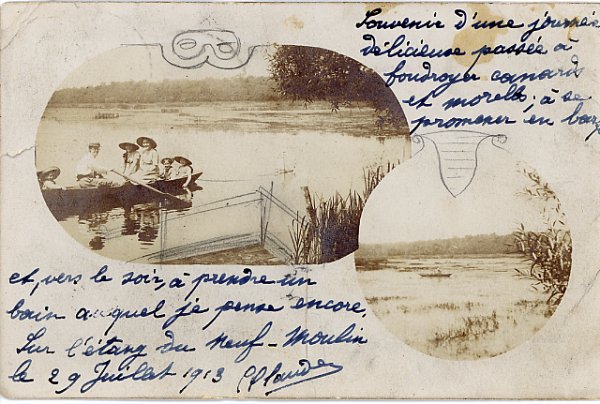 Souvenir d'une journée
délicieuse passée à
foudroyer canards
et morells à se
promener en bar
et, vers le soir, à prendre un
bain auquel je pense encore,
Sur l'étang du Neuf-Moulin
le 29 Juillet 1913